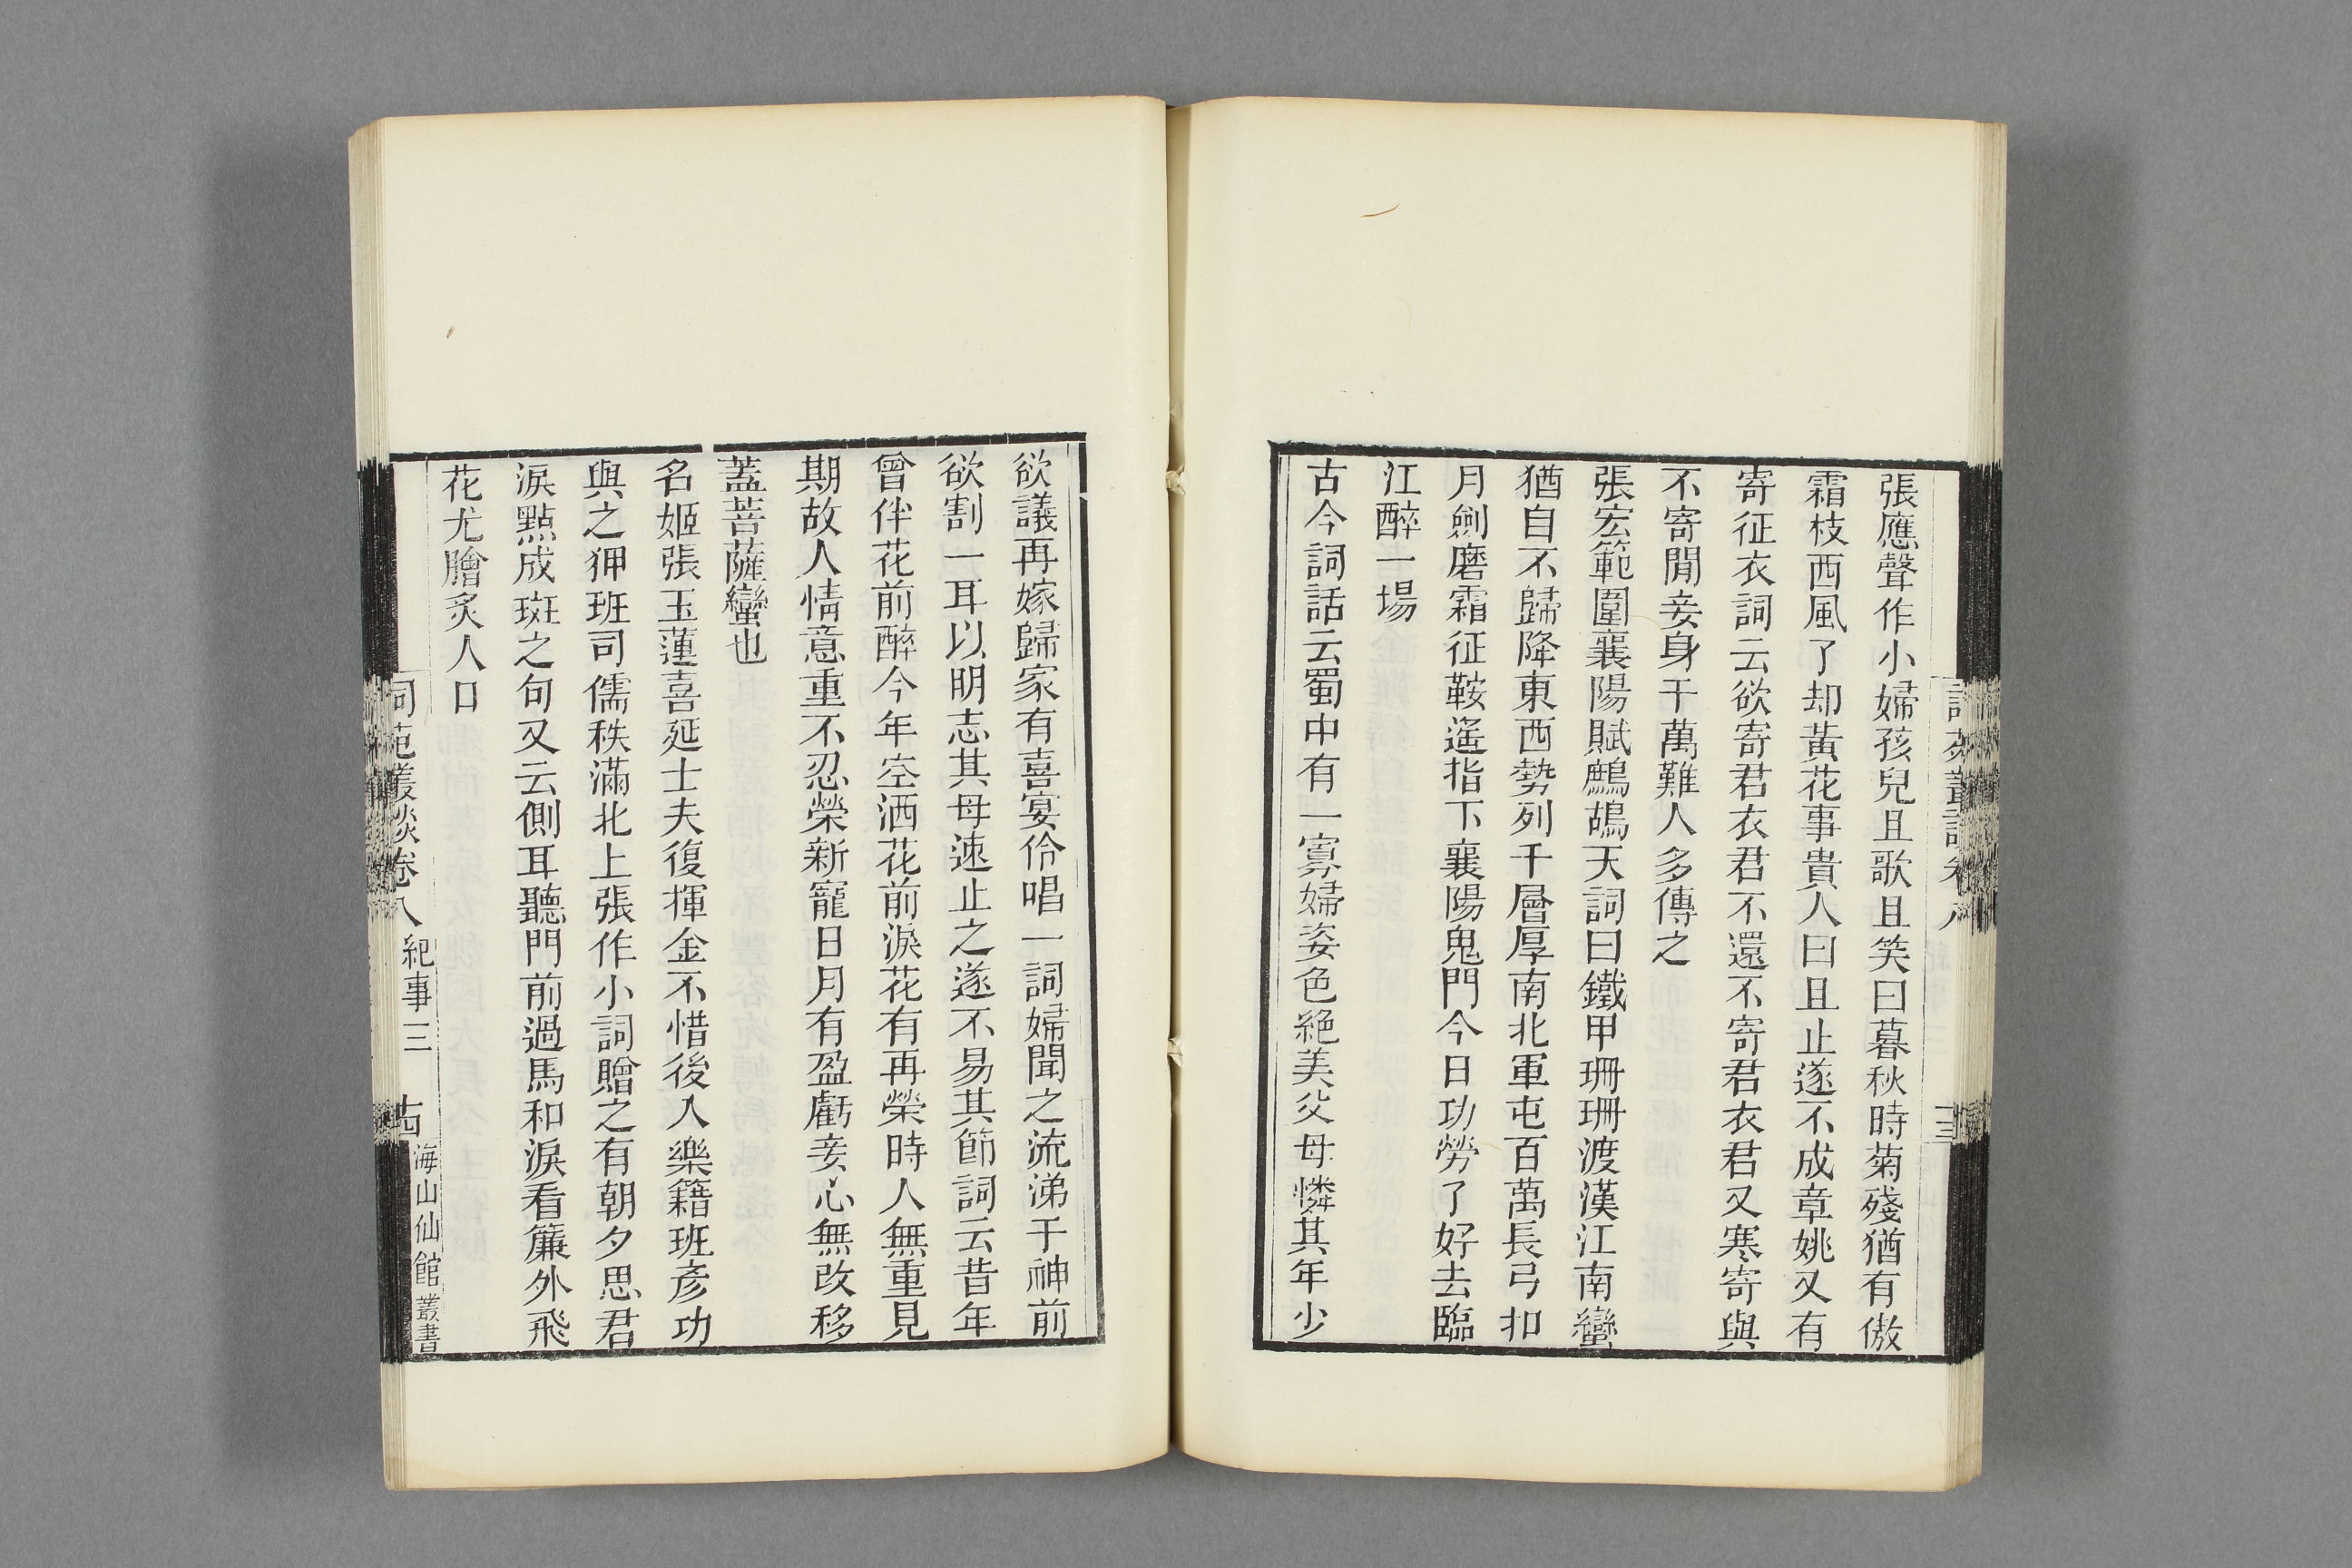 張應聲作小婦孩兒且歌且笑曰暮秋時菊殘猶有傲
霜枝西風了却黃花事貴人曰且止遂不成章姚又有
寄征衣詞云欲寄君衣君不還不寄君衣君又寒寄與
不寄閒妾身千萬難人多傳之
張宏範圍襄陽賦鷓鴣天詞曰鐵甲珊珊渡漢江南蠻
猶自不歸降東西勢列千層厚南北軍屯百萬長弓扣
月劍磨霜征鞍遙指下襄陽鬼門今日功勞了好去臨
江醉一場
古今詞話云蜀中有一寡婦姿色絕美父母憐其年少
欲議再嫁歸家有喜宴伶唱一詞婦聞之流涕于神前
欲割一耳以明志其母速止之遂不易其節詞云昔年
曾伴花前醉今年空洒花前淚花有再榮時人無重見
期故人情意重不忍榮新寵日月有盈虧妾心無改移
蓋菩薩蠻也
名姬張玉蓮喜延士夫復揮金不惜後入樂籍班彥功
與之狎班司儒秩滿北上張作小詞贈之有朝夕思君
淚點成斑之句又云側耳聽門前過馬和淚看簾外飛
花尤膾炙人口
詞苑叢談卷八
紀事三
古
海山仙館叢書